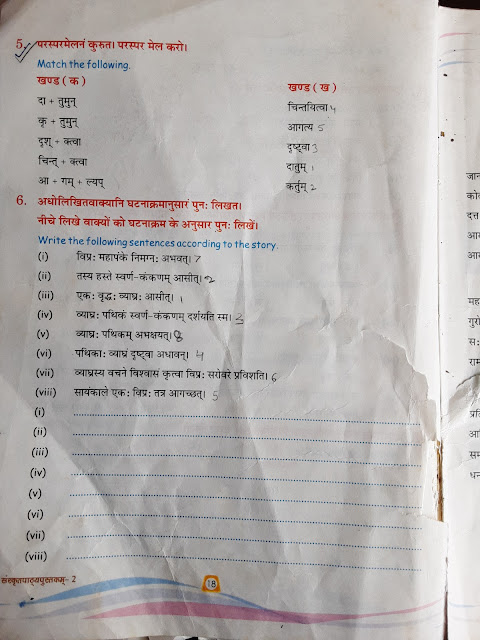 5. परस्परमेलनं कुरुत। परस्पर मेल करो।
Match the following.
खण्ड ( क ) खण्ड ( ख )
दा + तुमुन् चिन्तयित्वा 4
कृ + तुमुन् आगत्य 5
दृश् + क्त्वा दृष्ट्वा 3
चिन्त् + क्त्वा दातुम् 1
आ + गम् + ल्यप् कर्तुम् 2
6. अधोलिखितवाक्यानि घटनाक्रमानुसारं पुनः लिखत।
नीचे लिखे वाक्यों को घटनाक्रम के अनुसार पुनः लिखें।
Write the following sentences according to the story.
(i) विप्रः महापंके निमग्नः अभवत्। 7
(ii) तस्य हस्ते स्वर्ण-कंकणम् आसीत्। 2
(iii) एकः वृद्धः व्याघ्रः आसीत्। 1
(iv) व्याघ्रः पथिकं स्वर्ण-कंकणम् दर्शयति स्म। 3
(v) व्याघ्रः पथिकम् अभक्षयत्। 8
(vi) पथिकाः व्याघ्रं दृष्ट्वा अधावन्। 4
(vii) व्याघ्रस्य वचने विश्वासं कृत्वा विप्रः सरोवरे प्रविशति। 6
(viii) सायंकाले एकः विप्रः तत्र आगच्छत्। 5
(i)
(ii)
(iii)
(iv)
(v)
(vi)
(vii)
(viii)
संस्कृतपाठ्यपुस्तकम्- 2
18